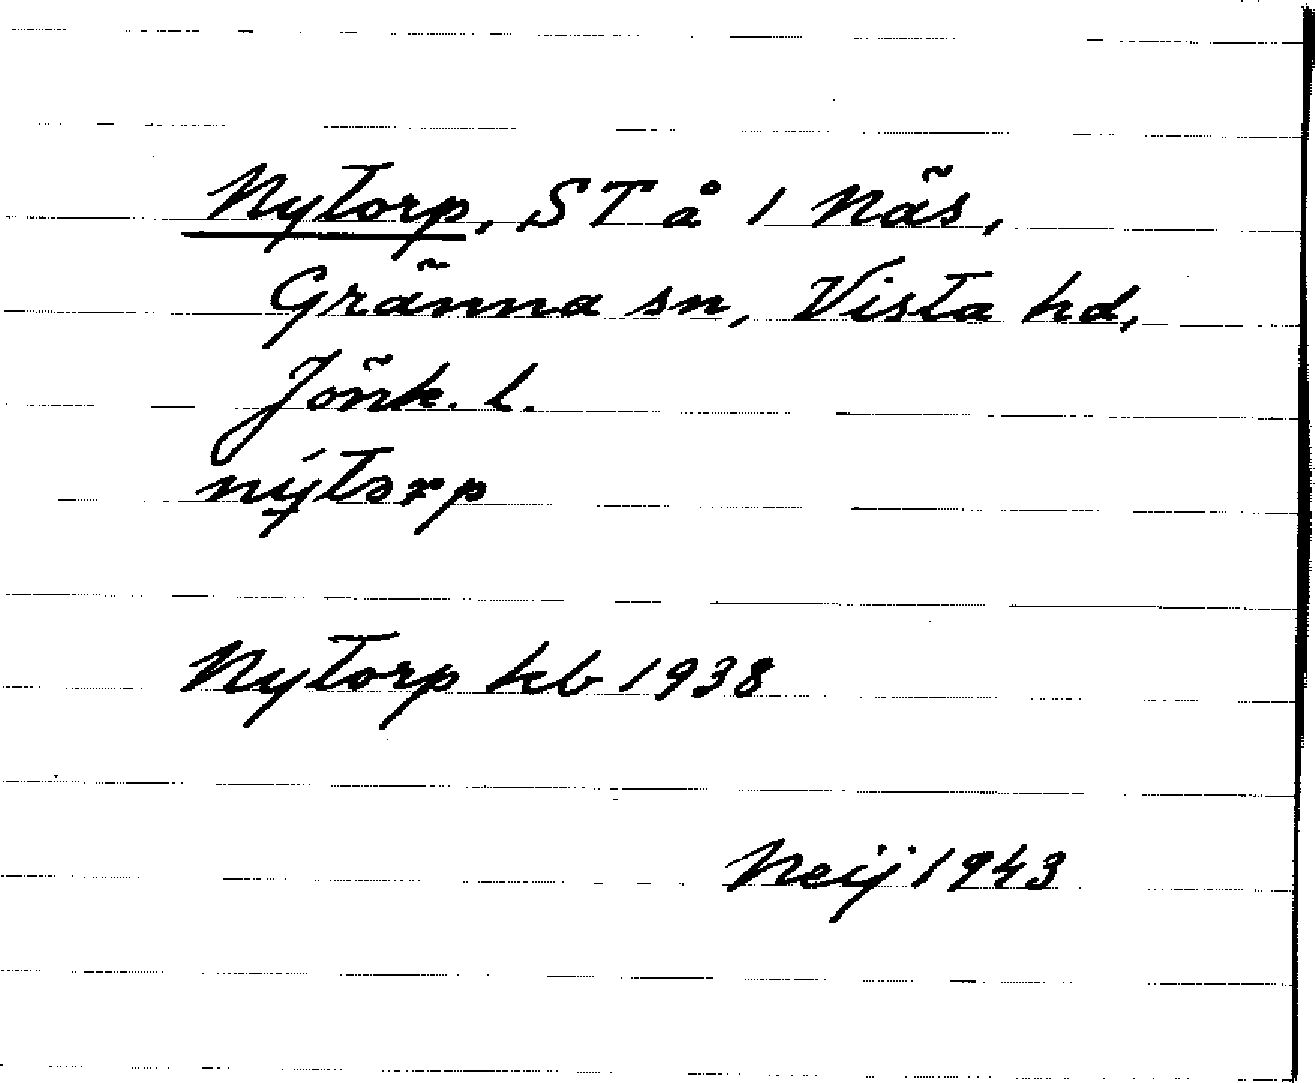 Nytorp, ST å 1 Näs,
Gränna sn, Vista hd,
Jönk. l.
nýtorp
Nytorp kb 1938
Neij 1943